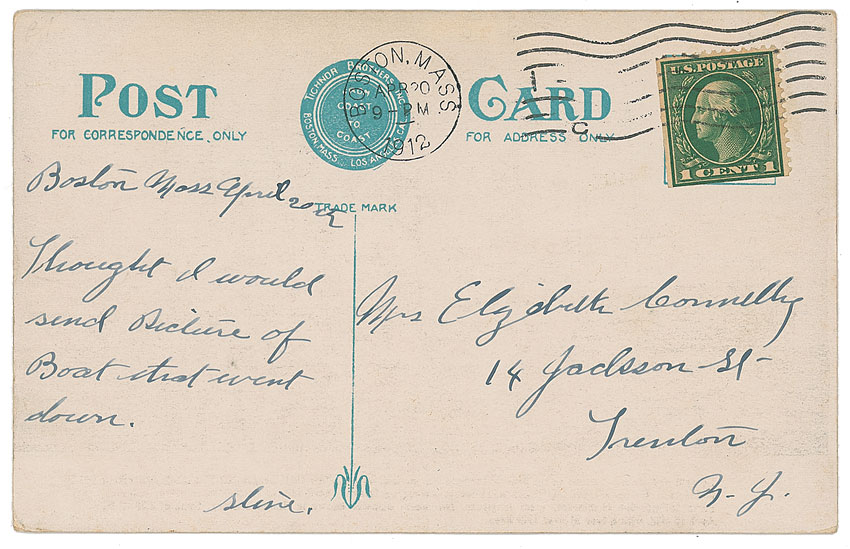 POST CARD
FOR CORRESPONDENCE ONLY
FOR ADDRESS ONLY
TICHNOR BROTHERS INC.
BOSTON, MASS. LOS ANGELES, CAL.
COAST
TO
COAST
TRADE MARK
BOSTON, MASS
APR 20
9 PM
1912
U.S. POSTAGE
1 CENT 1
Boston Mass April 20th
Thought I would
send Picture of
Boat that went
down.
Mrs Elizabeth Connelly
14 Jackson St
Trenton
N. J.